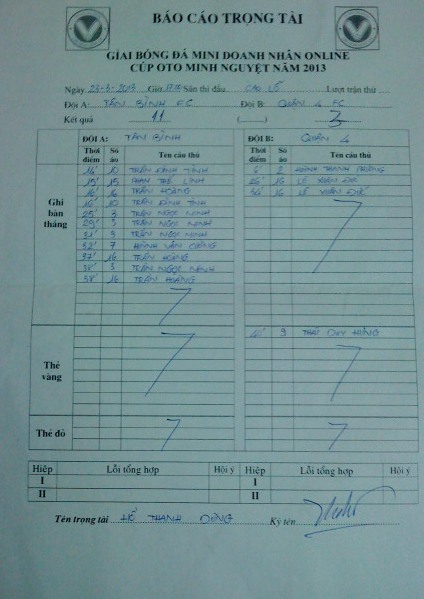 BÁO CÁO TRỌNG TÀI
GIẢI BÓNG ĐÁ MINI DOANH NHÂN ONLINE
CÚP OTO MINH NGUYỆT NĂM 2013
Ngày 23-3-2013 Giờ Sân thi đấu CAO LỖ Lượt trận thứ
Đội A: TÂN BÌNH FC Đội B: QUẬN 4 FC
Kết quả 11 (..........) 3
ĐỘI A: TÂN BÌNH ĐỘI B: QUẬN 4
Thời điểm Số áo Tên cầu thủ Thời điểm Số áo Tên cầu thủ
Ghi bàn thắng
14' 10 TRẦN ĐÌNH TÍNH 6' 2 THANH PHƯƠNG
15' 15 PHAN THẾ LINH 16 LÊ XUÂN
16 TRẦN HOÀNG 16 LÊ XUÂN
10 TRẦN ĐÌNH TÍNH
25' 3 TRẦN NGỌC MINH
29' 3 TRẦN NGỌC MINH
31' 3 TRẦN NGỌC MINH
32' 7 HUỲNH VĂN CƯỜNG
37' 16 TRẦN HOÀNG
38' 3 TRẦN NGỌC MINH
38' 16 TRẦN HOÀNG
Thẻ vàng
9 THÁI DUY HƯNG
Thẻ đỏ
Hiệp Lỗi tổng hợp Hội ý Hiệp Lỗi tổng hợp Hội ý
I I
II II
Tên trọng tài HỒ THANH DŨNG Ký tên